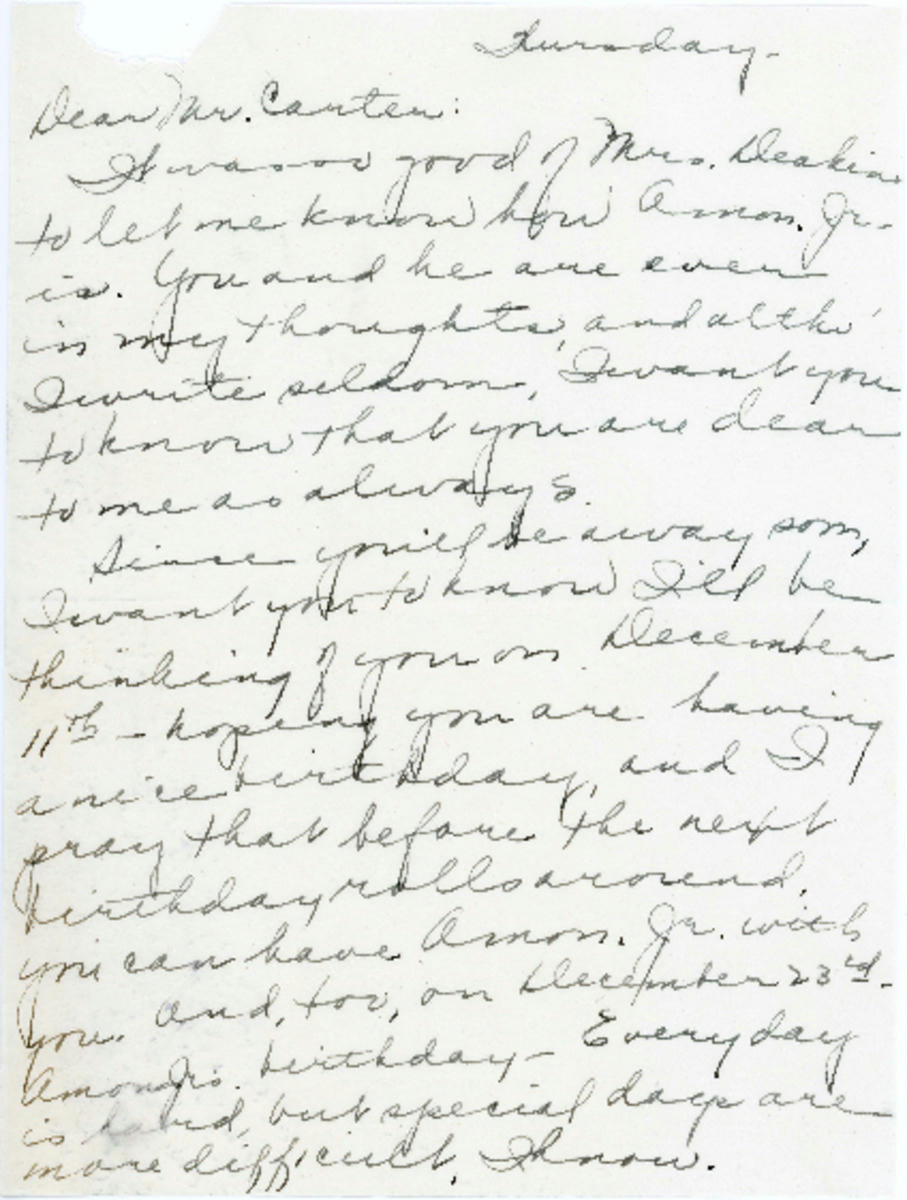 Tuesday -
Dear Mr. Carter:
It was so good of Mrs. Deakin
to let me know how Amon. Jr.
is. You and he are ever
in my thoughts, and altho'
I write seldom, I want you
to know that you are dear
to me as always.
Since you'll be away soon,
I want you to know I'll be
thinking of you on December
11th - hoping you are having
a nice birthday, and I
pray that before the next
birthday rolls around,
you can have Amon. Jr. with
you. And, too, on December 23rd -
Amon Jr's. birthday - Everyday
is hard, but special days are
more difficult, I know.